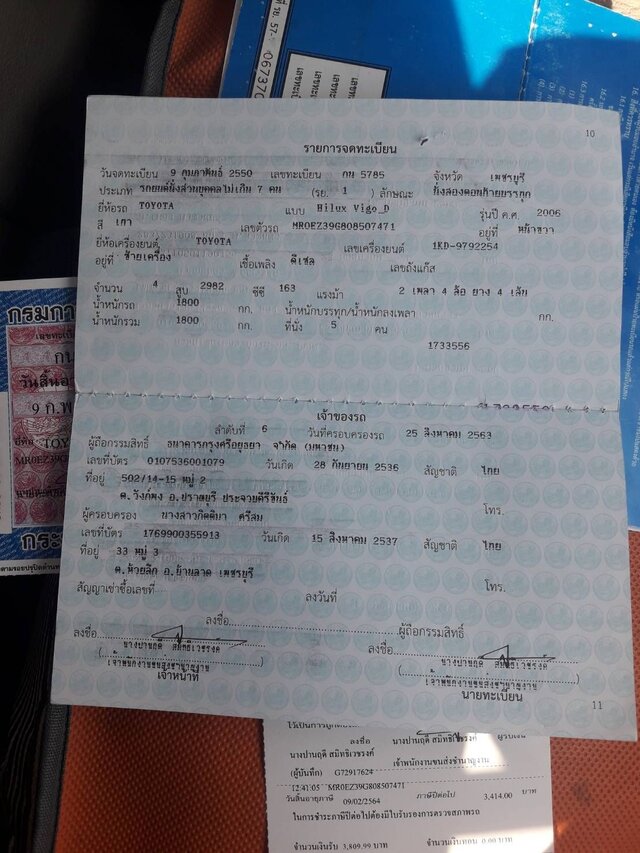 10
รายการจดทะเบียน
วันจดทะเบียน 9 กุมภาพันธ์ 2550 เลขทะเบียน กน 5785 จังหวัด เพชรบุรี
ประเภท รถยนต์นั่งส่วนบุคคลไม่เกิน 7 คน (รย. 1) ลักษณะ นั่งสองตอนท้ายบรรทุก
ยี่ห้อรถ TOYOTA แบบ Hilux Vigo_D รุ่นปี ค.ศ. 2006
สี เทา เลขตัวรถ MR0EZ39G808507471 อยู่ที่ หน้าขวา
ยี่ห้อเครื่องยนต์ TOYOTA เลขเครื่องยนต์ 1KD-9792254
อยู่ที่ ซ้ายเครื่อง เชื้อเพลิง ดีเซล เลขถังแก๊ส
จำนวน 4 สูบ 2982 ซีซี 163 แรงม้า 2 เพลา 4 ล้อ ยาง 4 เส้น
น้ำหนักรถ 1800 กก. น้ำหนักบรรทุก/น้ำหนักลงเพลา กก.
น้ำหนักรวม 1800 กก. ที่นั่ง 5 คน
1733556
เจ้าของรถ
ลำดับที่ 6 วันที่ครอบครองรถ 25 สิงหาคม 2563
ผู้ถือกรรมสิทธิ์ ธนาคารกรุงศรีอยุธยา จำกัด (มหาชน)
เลขที่บัตร 0107536001079 วันเกิด 28 กันยายน 2536 สัญชาติ ไทย
ที่อยู่ 502/14-15 หมู่ 2
ต.วังก์พง อ.ปราณบุรี ประจวบคีรีขันธ์ โทร.
ผู้ครอบครอง นางสาวกิตติมา ศรีสม
เลขที่บัตร 1769900355913 วันเกิด 15 สิงหาคม 2537 สัญชาติ ไทย
ที่อยู่ 33 หมู่ 3
ต.ห้วยลึก อ.บ้านลาด เพชรบุรี โทร.
สัญญาเช่าซื้อเลขที่ ลงวันที่
ลงชื่อ ผู้ถือกรรมสิทธิ์
ลงชื่อ ลงชื่อ
นางปานฤดี สมิทธิเวชรงค์ นางปานฤดี สมิทธิเวชรงค์
เจ้าพนักงานขนส่งชำนาญงาน เจ้าพนักงานขนส่งชำนาญงาน
เจ้าหน้าที่ นายทะเบียน
11
ที่ รย. 57-
067370
กรมกา
เลขทะเบีย
กน
วันสิ้นอา
9 ก.พ
ยี่ห้อ TOY
MR0EZ39G
ลงชื่อ นางปานฤดี สมิทธิเวชรงค์ ผู้รับเงิน
นางปานฤดี สมิทธิเวชรงค์ เจ้าพนักงานขนส่งชำนาญงาน
(ผู้บันทึก) G72917624
12:41:05 MR0EZ39G808507471
วันสิ้นอายุภาษี 09/02/2564 ภาษีปีต่อไป 3,414.00 บาท
ในการชำระภาษีปีต่อไปต้องมีใบรับรองการตรวจสภาพรถ
จำนวนเงินรับ 3,809.99 บาท จำนวนเงินทอน 0.00 บาท